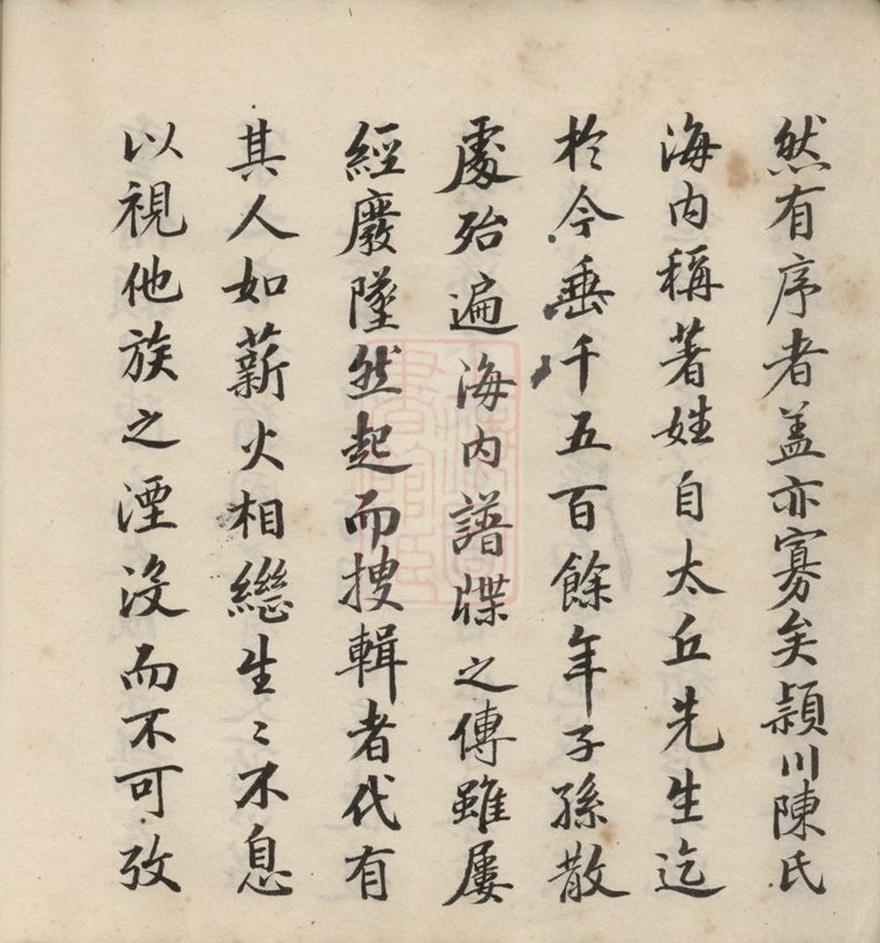 然有序者蓋亦寡矣潁川陳氏
海内稱著姓自太丘先生迄
於今垂千五百餘年子孫散
處殆遍海内譜牒之傳雖屢
經廢墜然起而搜輯者代有
其人如薪火相繼生〻不息
以視他族之湮沒而不可攷